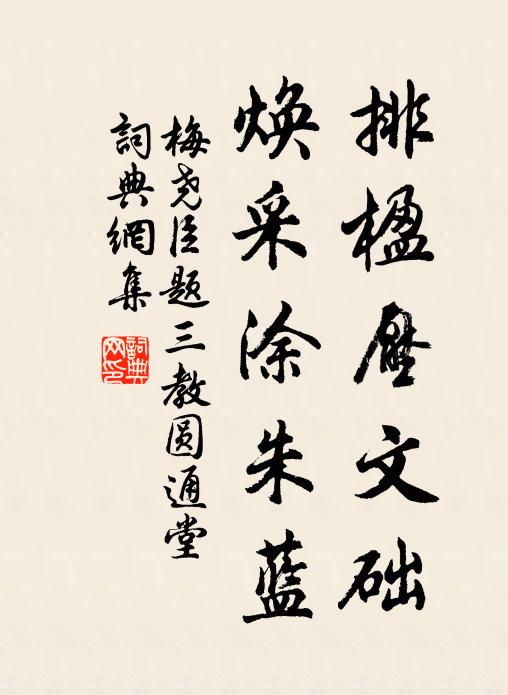 排楹壓文础
焕采涂朱藍
梅尧臣题三教圆通堂
詞典網集
詞典網印